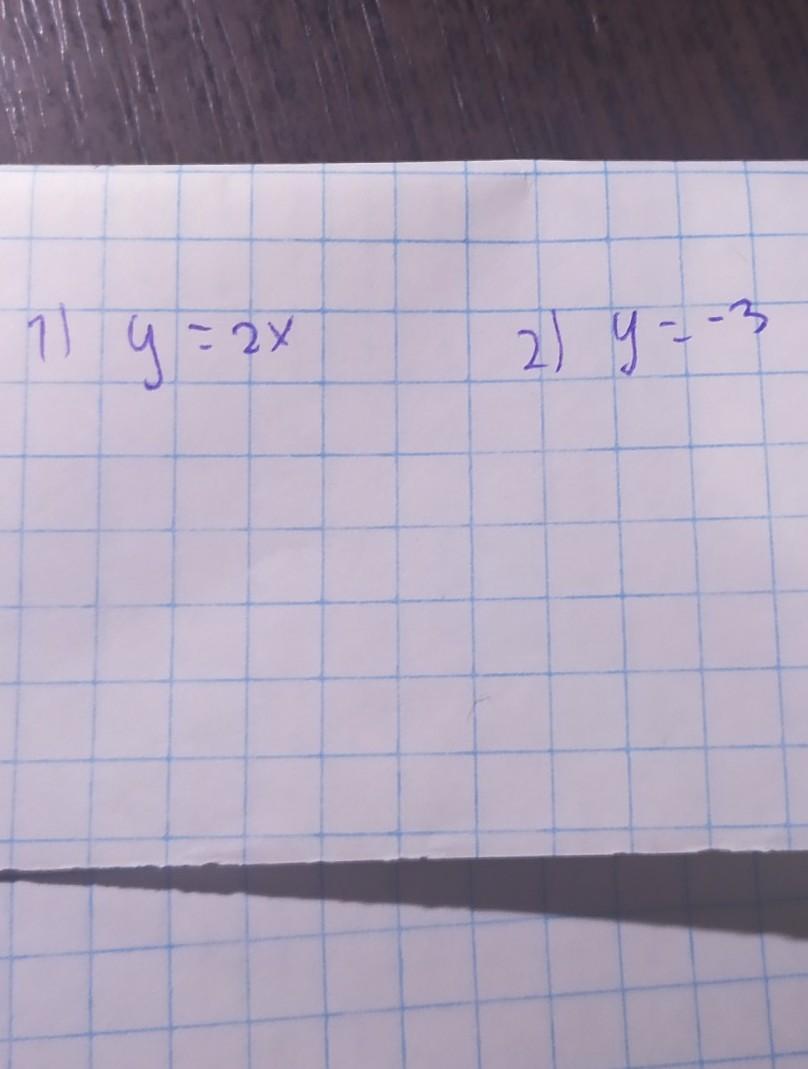 1) y = 2x 2) y = -3